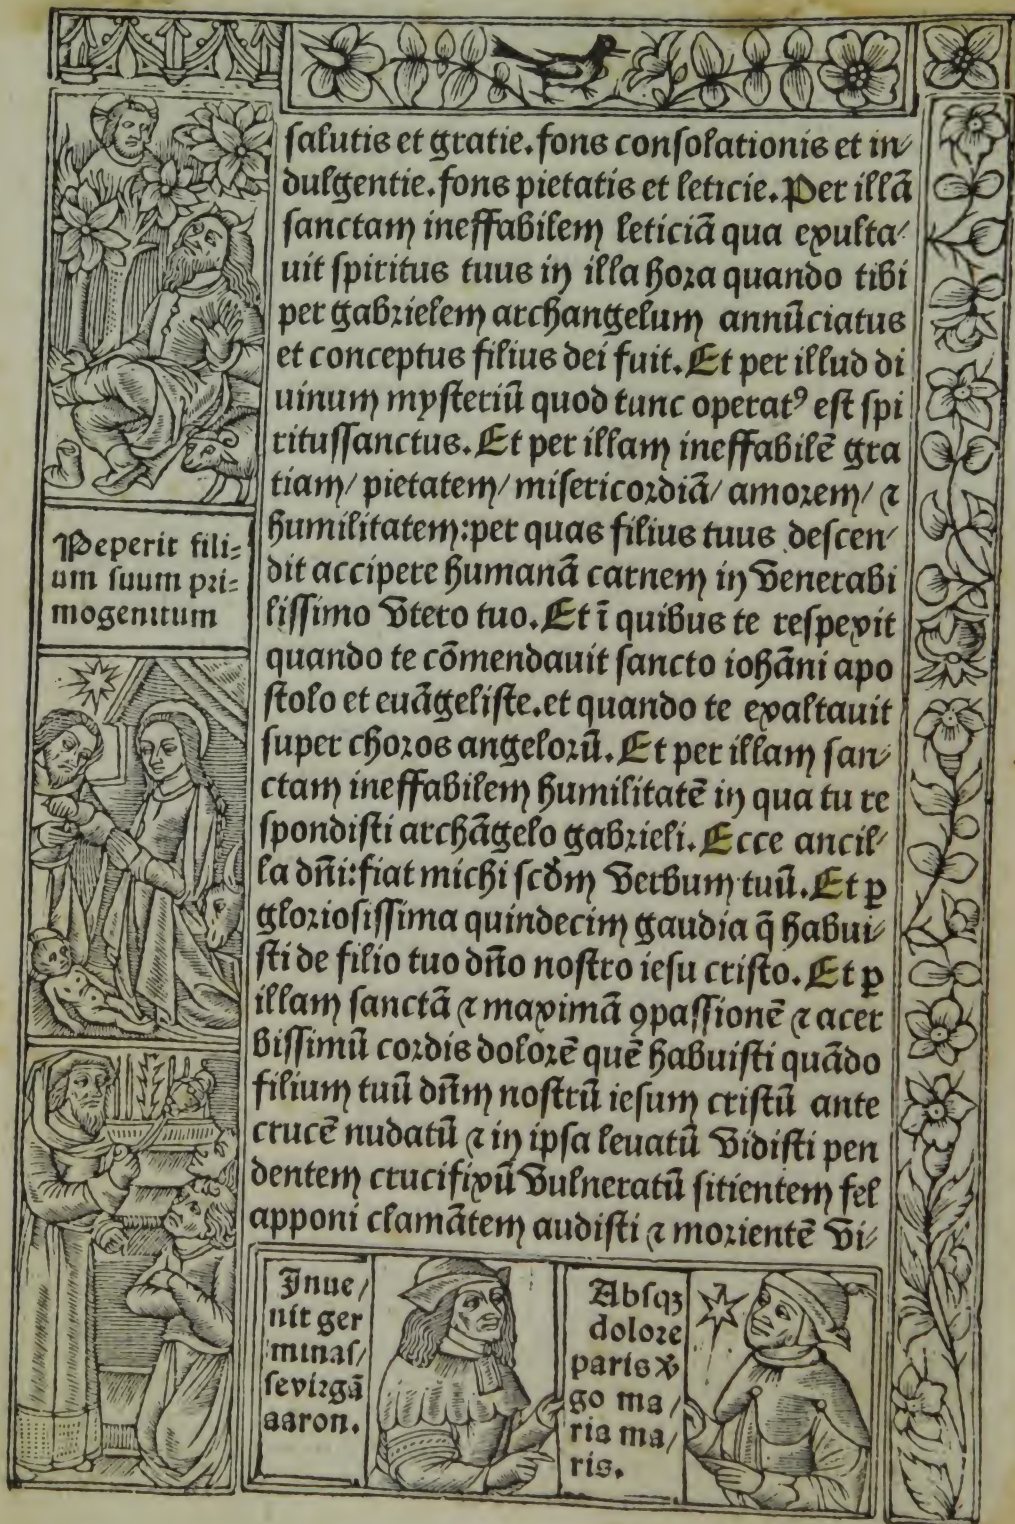 salutis et gratie. fons consolationis et in⸗
dulgentie. fons pietatis et leticie. Per illã
sanctam ineffabilem leticiã qua exulta⸗
uit spiritus tuus in illa hora quando tibi
per gabrielem archangelum annũciatus
et conceptus filius dei fuit. Et per illud di
uinum mysteriũ quod tunc operatꝰ est spi
ritussanctus. Et per illam ineffabilẽ gra
tiam/ pietatem/ misericordiã/ amorem/ ⁊
humilitatem: per quas filius tuus descen⸗
dit accipere humanã carnem in venerabi
lissimo vtero tuo. Et ĩ quibus te respexit
quando te cõmendauit sancto iohãni apo
stolo et euãgeliste. et quando te exaltauit
super choros angelorũ. Et per illam san⸗
ctam ineffabilem humilitatẽ in qua tu re
spondisti archãgelo gabrieli. Ecce ancil⸗
la dñi: fiat michi scdm̃ verbum tuũ. Et ꝑ
gloriosissima quindecim gaudia q̃ habui⸗
sti de filio tuo dño nostro iesu cristo. Et ꝑ
illam sanctã ⁊ maximã ꝯpassionẽ ⁊ acer
bissimũ cordis dolorẽ quẽ habuisti quãdo
filium tuũ dñm nostrũ iesum cristũ ante
crucẽ nudatũ ⁊ in ipsa leuatũ vidisti pen
dentem crucifixũ vulneratũ sitientem fel
apponi clamãtem audisti ⁊ morientẽ vi⸗
Peperit fili⸗
um suum pri⸗
mogenitum
Inue/
nit ger
minas/
se virgã
aaron.
Absqꝫ
dolore
paris v̓
go ma/
ria ma/
ris.